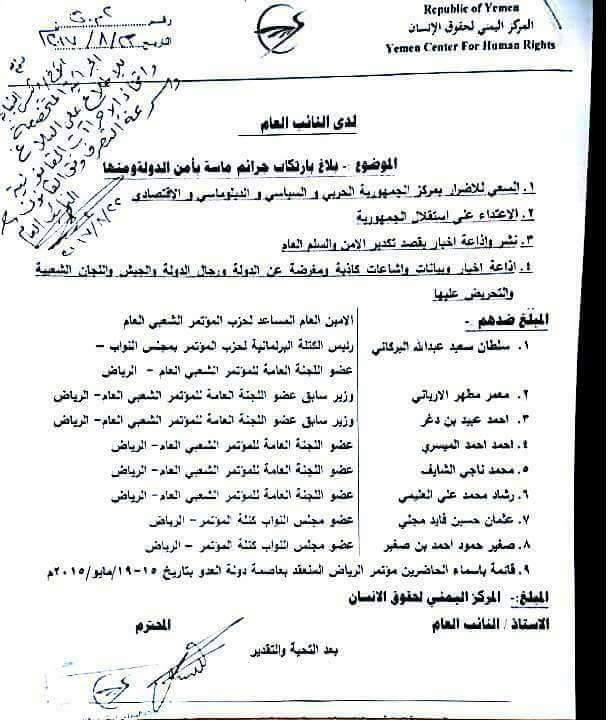 Republic of Yemen
المركز اليمني لحقوق الإنسان
Yemen Center For Human Rights
٢٠١٧/٨/٢٣
لدى النائب العام
الموضوع :- بلاغ بارتكاب جرائم ماسة بأمن الدولة ومنها
١. السعي للاضرار بمركز الجمهورية الحربي و السياسي و الدبلوماسي و الاقتصادي
٢. الاعتداء على استقلال الجمهورية
٣. نشر وإذاعة اخبار بقصد تكدير الامن والسلم العام
٤. إذاعة اخبار وبيانات واشاعات كاذبة ومغرضة عن الدولة ورجال الدولة والجيش واللجان الشعبية
والتحريض عليها
المبلغ ضدهم :-
الامين العام المساعد لحزب المؤتمر الشعبي العام
١. سلطان سعيد عبدالله البركاني رئيس الكتلة البرلمانية لحزب المؤتمر بمجلس النواب –
عضو اللجنة العامة للمؤتمر الشعبي العام - الرياض
٢. معمر مطهر الارياني وزير سابق عضو اللجنة العامة للمؤتمر الشعبي العام- الرياض
٣. احمد عبيد بن دغر وزير سابق عضو اللجنة العامة للمؤتمر الشعبي العام- الرياض
٤. احمد احمد الميسري عضو اللجنة العامة للمؤتمر الشعبي العام- الرياض
٥. محمد ناجي الشايف عضو اللجنة العامة للمؤتمر الشعبي العام- الرياض
٦. رشاد محمد علي العليمي عضو اللجنة العامة للمؤتمر الشعبي العام- الرياض
٧. عثمان حسين فايد مجلي عضو مجلس النواب كتلة المؤتمر- الرياض
٨. صغير حمود احمد بن صغير عضو مجلس النواب كتلة المؤتمر – الرياض
٩. قائمة باسماء الحاضرين مؤتمر الرياض المنعقد بعاصمة دولة العدو بتاريخ ١٥-١٩/مايو/٢٠١٥م
المبلغ:- المركز اليمني لحقوق الانسان
الاستاذ / النائب العام المحترم
بعد التحية والتقدير